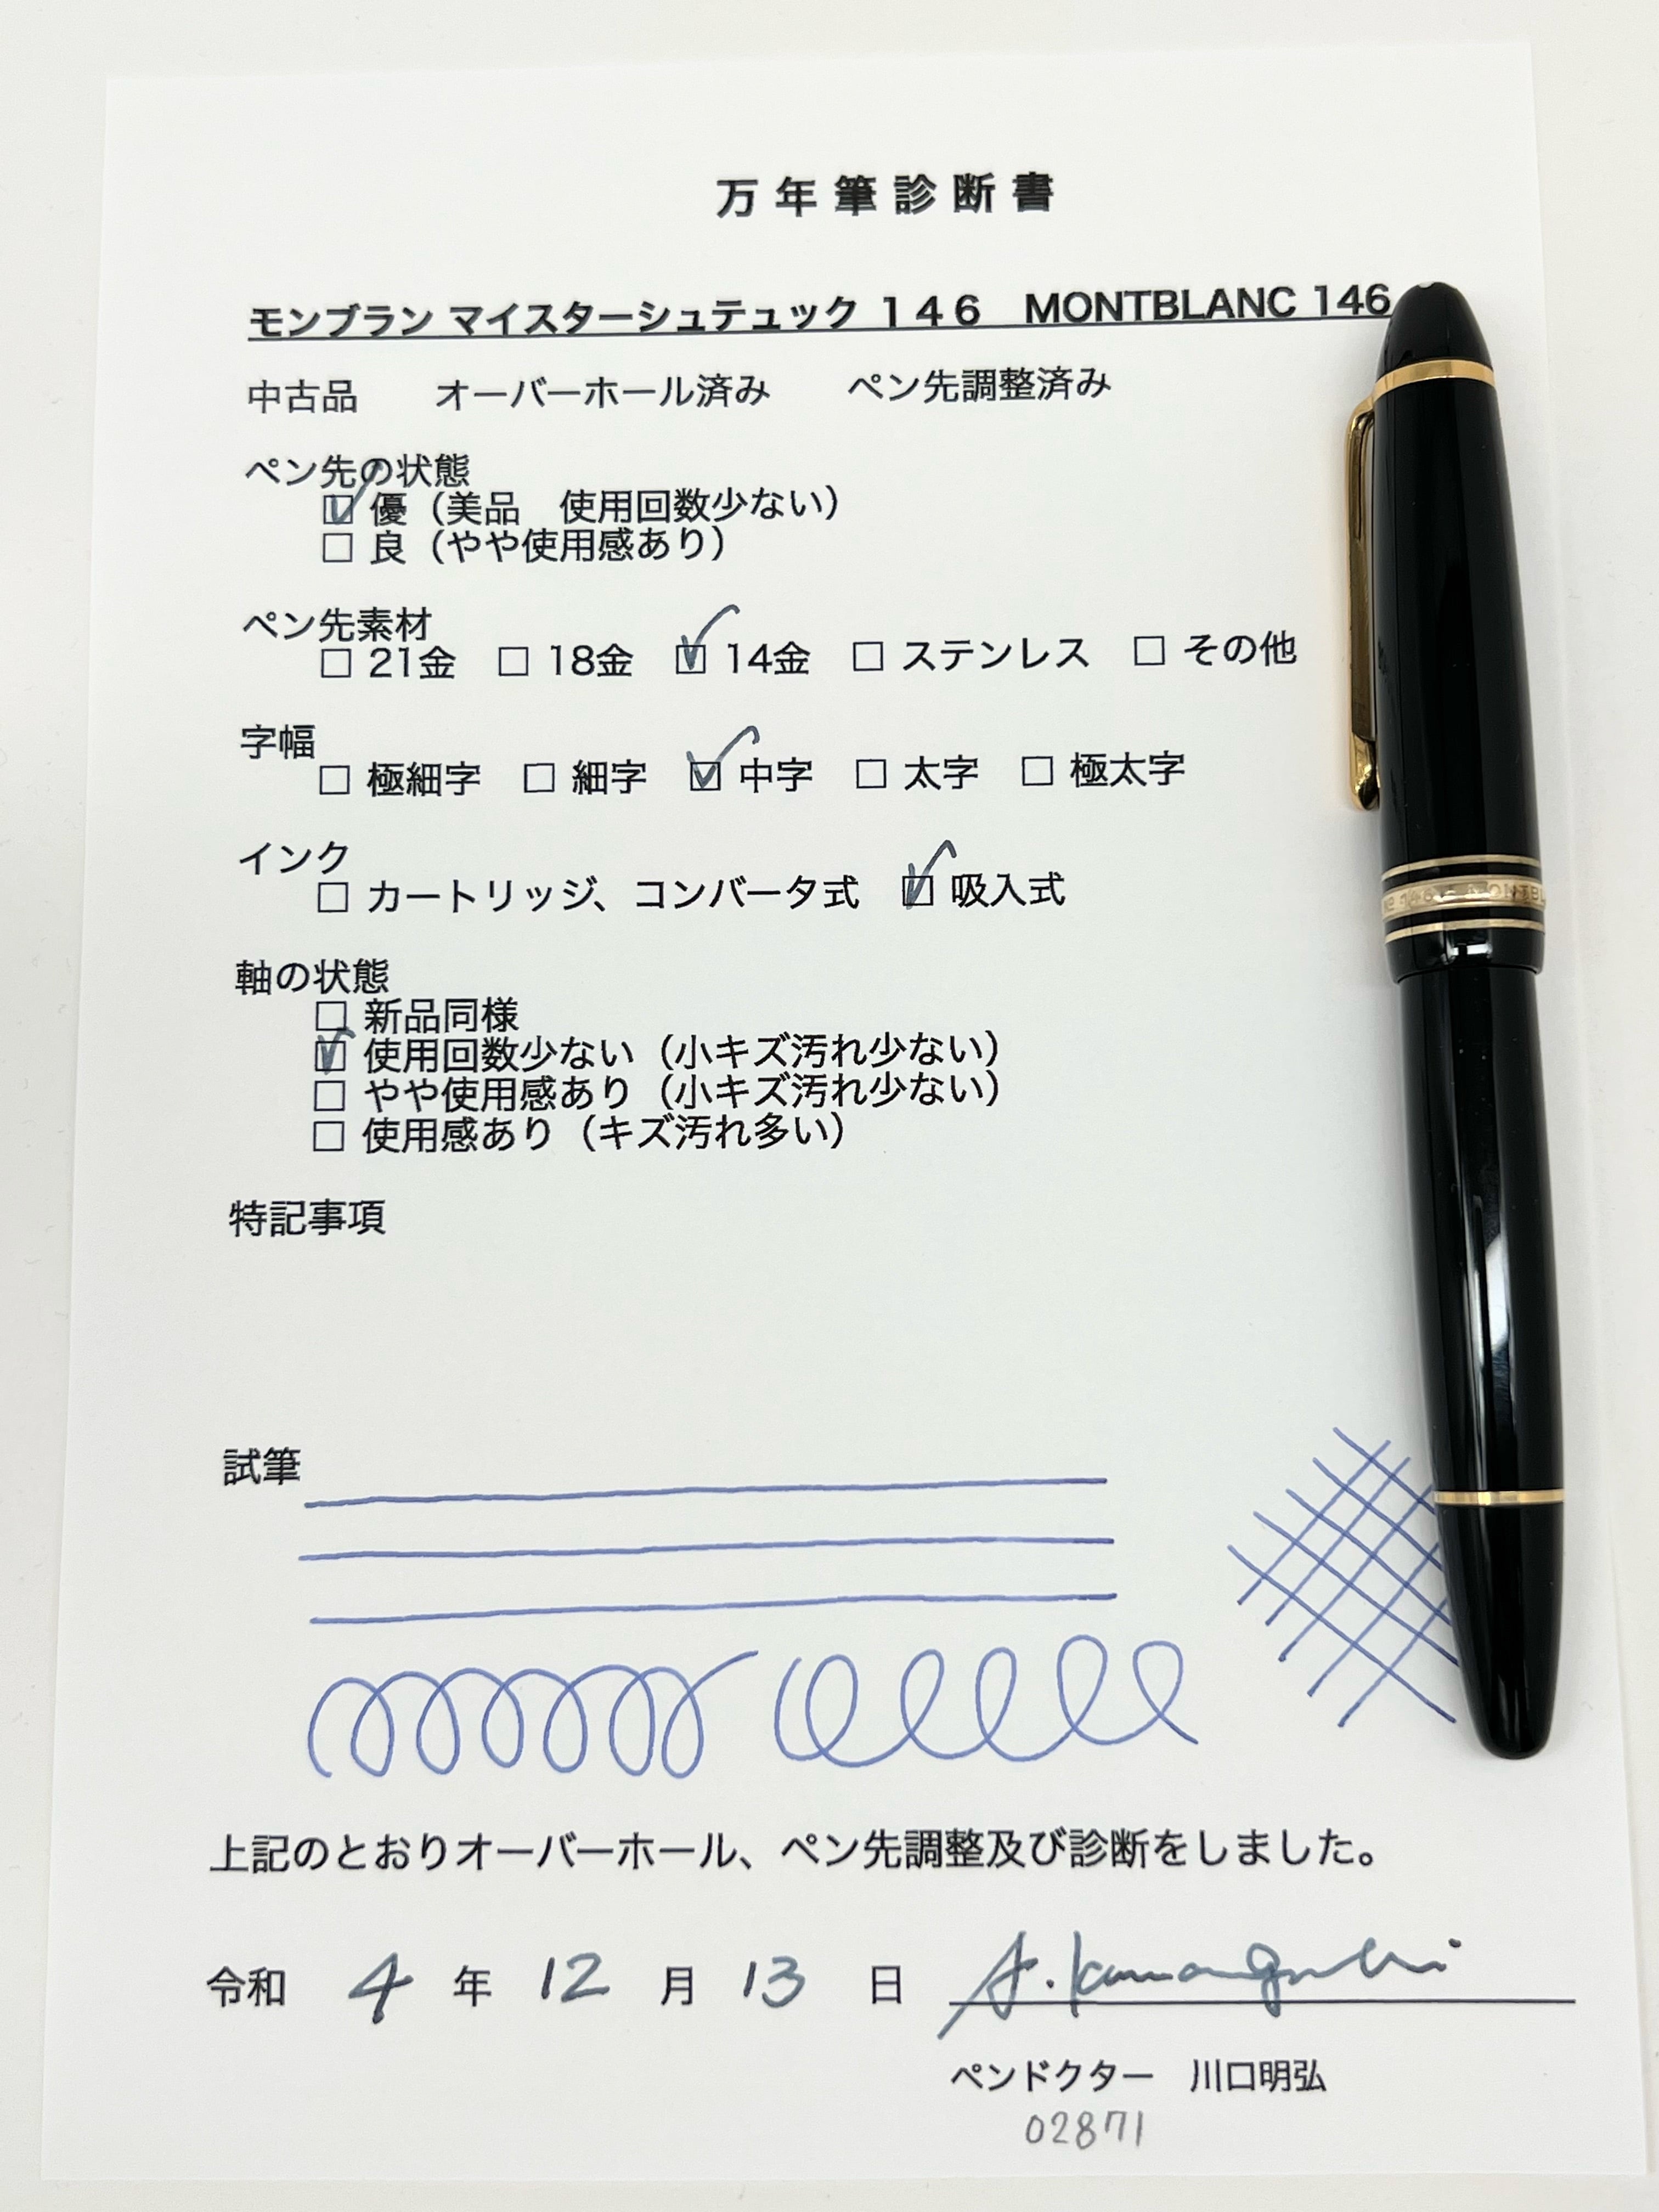 万年筆診断書
モンブラン マイスターシュテュック １４６　MONTBLANC 146
中古品　　オーバーホール済み　　ペン先調整済み
ペン先の状態
☑ 優（美品　使用回数少ない）
☐ 良（やや使用感あり）
ペン先素材
☐ 21金　☐ 18金　☑ 14金　☐ ステンレス　☐ その他
字幅
☐ 極細字　☐ 細字　☑ 中字　☐ 太字　☐ 極太字
インク
☐ カートリッジ、コンバータ式　☑ 吸入式
146 MONTBL
軸の状態
☐ 新品同様
☑ 使用回数少ない（小キズ汚れ少ない）
☐ やや使用感あり（小キズ汚れ少ない）
☐ 使用感あり（キズ汚れ多い）
特記事項
試筆
上記のとおりオーバーホール、ペン先調整及び診断をしました。
令和 4 年 12 月 13 日 A. Kawaguchi
ペンドクター　川口明弘
02871